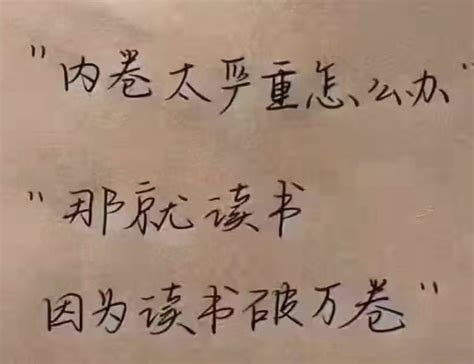 "内卷太严重怎么办"
"那就读书
因为读书破万卷"